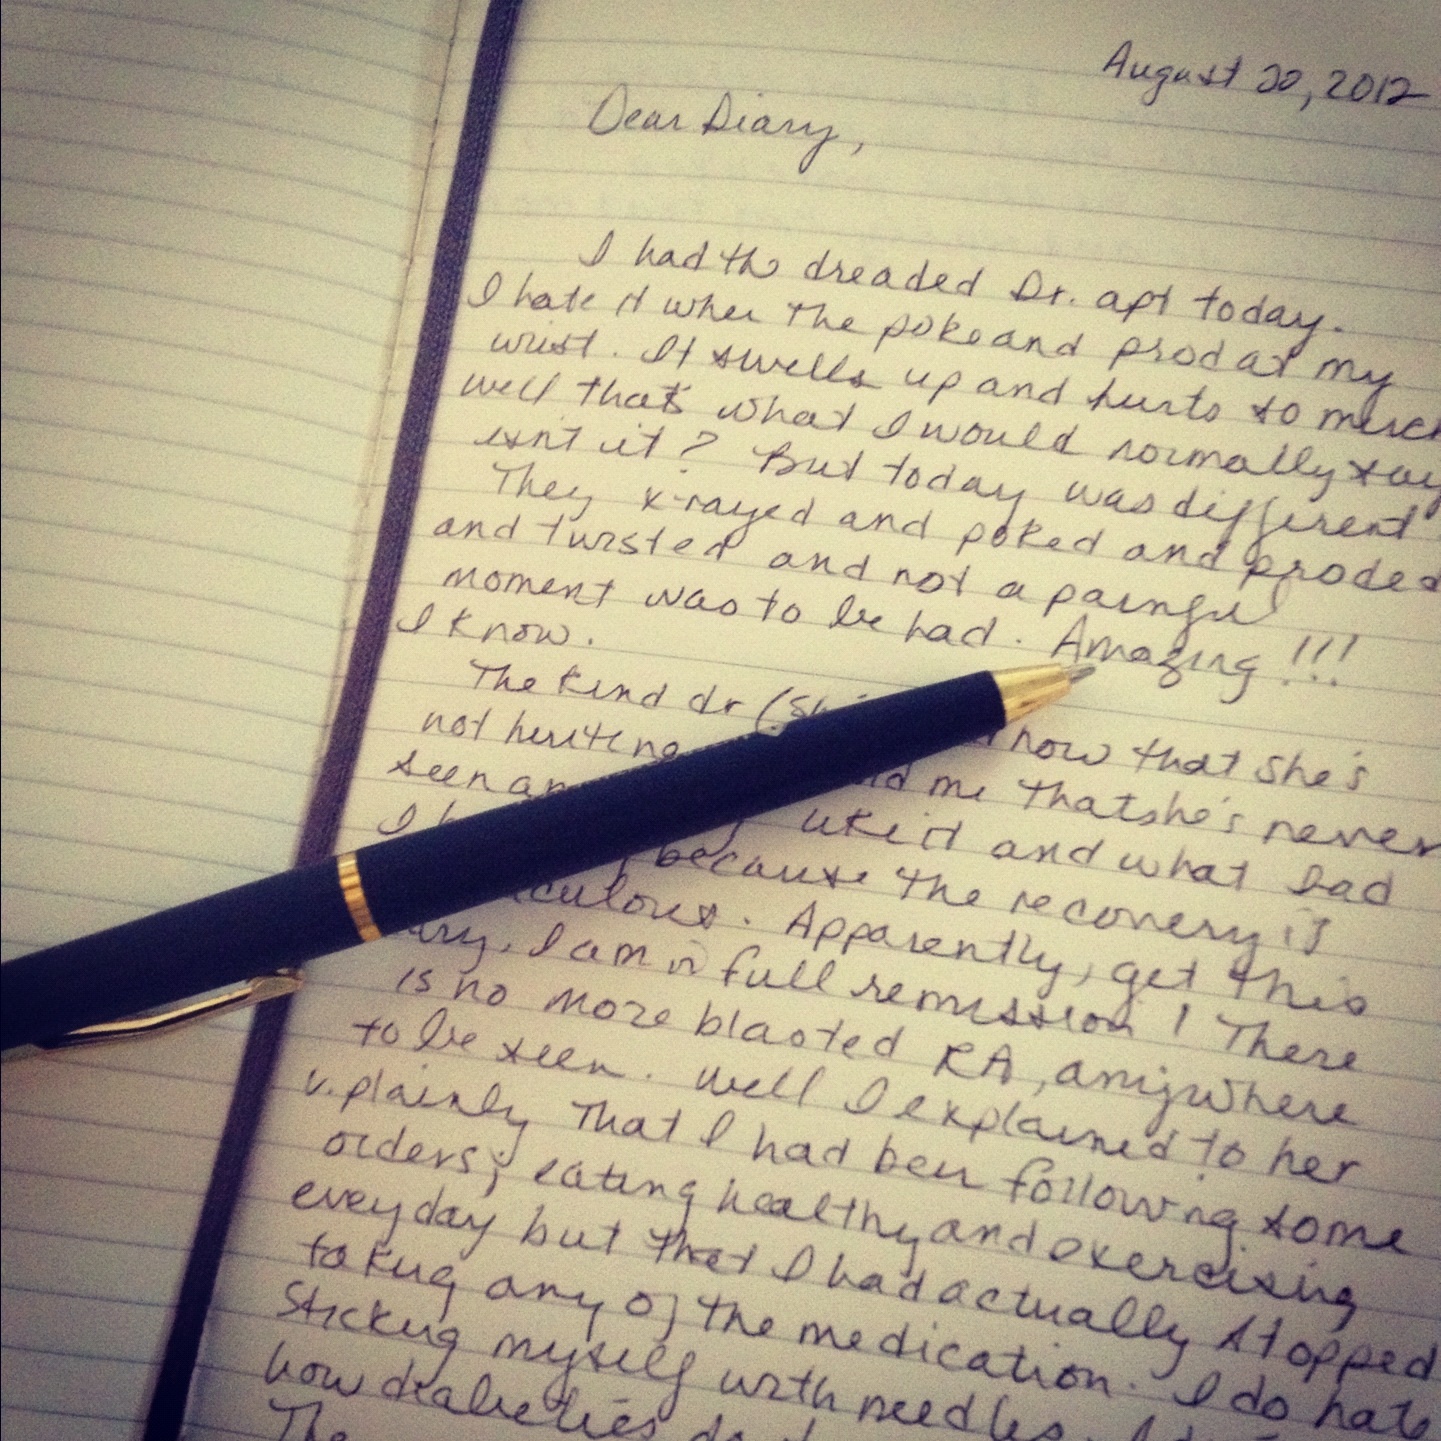 August 20, 2012
Dear Diary,
I had the dreaded Dr. apt today.
I hate it when the poke and prod at my
wrist. It swells up and hurts so much
well that's what I would normally say
isnt it? But today was different
They x-rayed and poked and proded
and twisted and not a painful
moment was to be had. Amazing!!!
I know.
The kind dr ( now that she's
not hurting me that she's never
seen like it and what Dad
I because the recovery is
Apparently, get this
I am in full remission! There
is no more blasted RA, anywhere
to be seen. Well I explained to her
v. plainly that I had been following some
orders; eating healthy and exercising
everyday but that I had actually stopped
taking any of the medication. I do hate
sticking myself with needles.
how diabeties
The